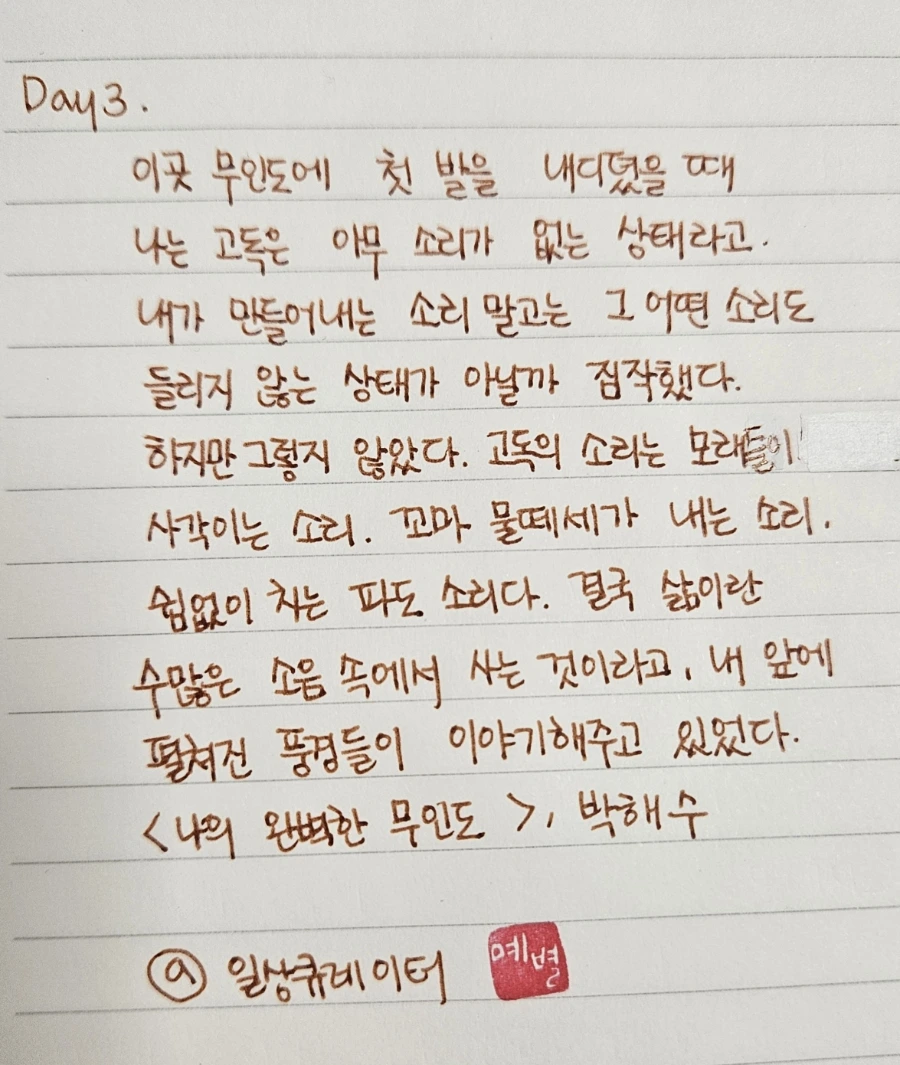 Day 3.
이곳 무인도에 첫 발을 내디뎠을 때
나는 고독은 아무 소리가 없는 상태라고.
내가 만들어내는 소리 말고는 그 어떤 소리도
들리지 않는 상태가 아닐까 짐작했다.
하지만 그렇지 않았다. 고독의 소리는 모래들이
사각이는 소리. 꼬마 물떼세가 내는 소리.
쉼없이 치는 파도 소리다. 결국 삶이란
수많은 소음 속에서 사는 것이라고, 내 앞에
펼쳐진 풍경들이 이야기해주고 있었다.
<나의 완벽한 무인도>, 박해수
@ 일상큐레이터 예별